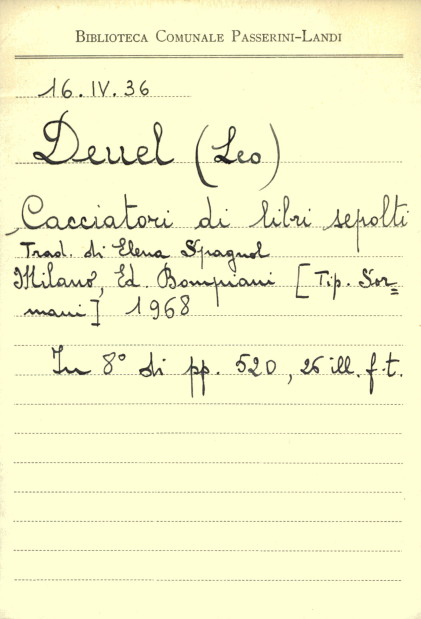 BIBLIOTECA COMUNALE PASSERINI-LANDI
16.IV.36
Deuel (Leo)
Cacciatori di libri sepolti
Trad. di Elena Spagnol
Milano, Ed. Bompiani [Tip. Sor=
mani] 1968
In 8° di pp. 520, 26 ill. f.t.